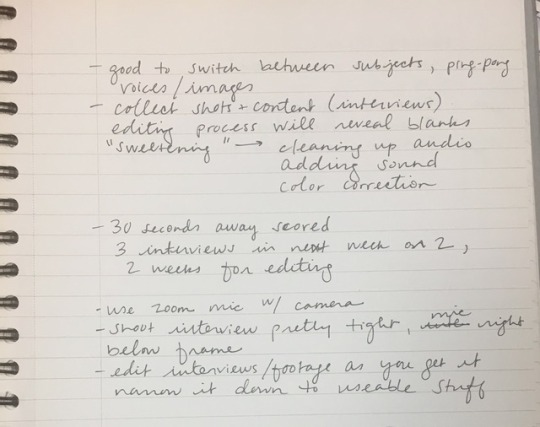 - good to switch between subjects, ping-pong
voices/images
- collect shots + content (interviews)
editing process will reveal blanks
"sweetening" → cleaning up audio
adding sound
color correction
- 30 seconds away scored
3 interviews in next week or 2,
2 weeks for editing
- use zoom mic w/ camera
- shoot interview pretty tight, mic right
below frame
- edit interviews/footage as you get it
narrow it down to useable stuff